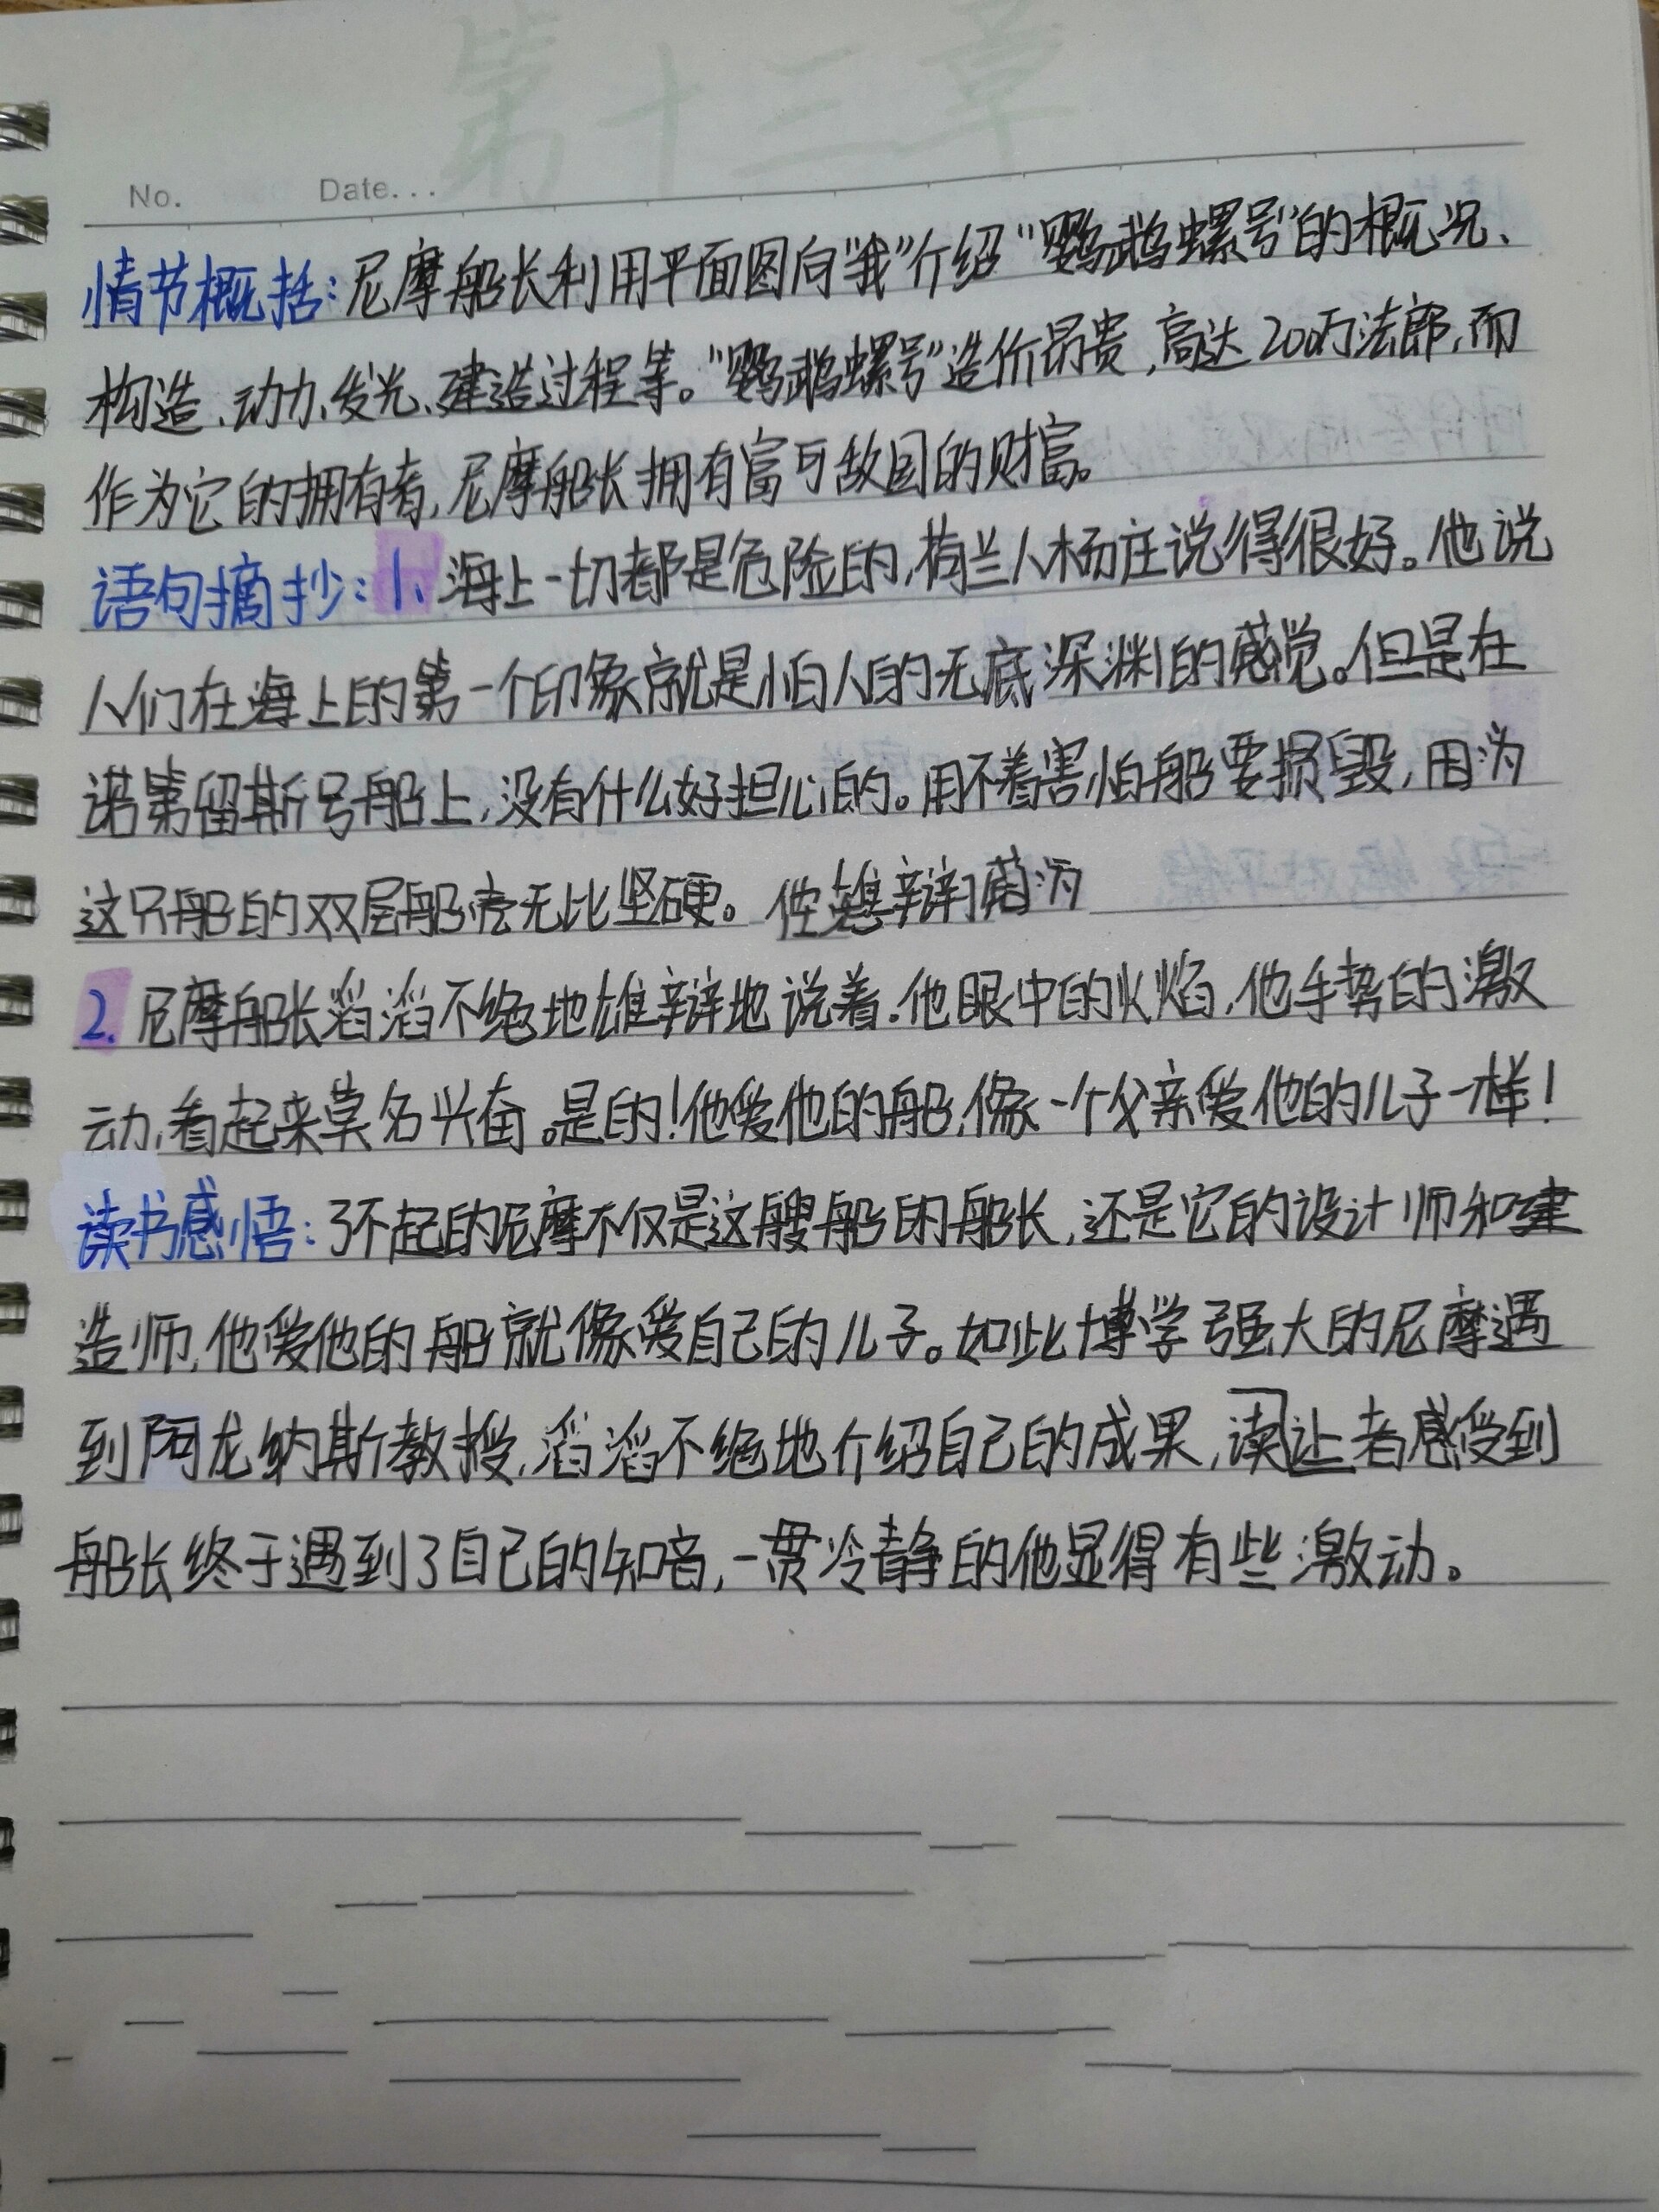 第十三章
No. Date...
情节概括：尼摩船长利用平面图向“我”介绍“鹦鹉螺号”的概况、
构造、动力、发光、建造过程等。“鹦鹉螺号”造价昂贵，高达200万法郎，而
作为它的拥有者，尼摩船长拥有富可敌国的财富。
语句摘抄：1、海上一切都是危险的，荷兰人杨庄说得很好。他说
人们在海上的第一个印象就是怕人的无底深渊的感觉。但是在
诺第留斯号船上，没有什么好担心的。用不着害怕船要损毁，因为
这只船的双层船壳无比坚硬。
2. 尼摩船长滔滔不绝地雄辩地说着。他眼中的火焰，他手势的激
动，看起来莫名兴奋。是的！他爱他的船，像一个父亲爱他的儿子一样！
读书感悟：了不起的尼摩不仅是这艘船的船长，还是它的设计师和建
造师，他爱他的船就像爱自己的儿子。如此博学强大的尼摩遇
到阿龙纳斯教授，滔滔不绝地介绍自己的成果，读让者感受到
船长终于遇到了自己的知音，一贯冷静的他显得有些激动。